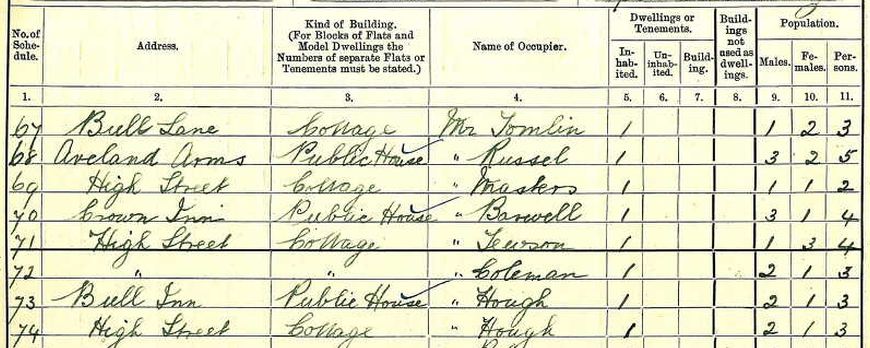 No. of Sche- dule. Address. Kind of Building. (For Blocks of Flats and Model Dwellings the Numbers of separate Flats or Tenements must be stated.) Name of Occupier. Dwellings or Tenements. In- hab- ited. Un- inhab- ited. Build- ing. Build- ings not used as dwell- ings. Population. Males. Fe- males. Per- sons.
1. 2. 3. 4. 5. 6. 7. 8. 9. 10. 11.
67 Bull Lane Cottage Mr Tomlin 1 1 2 3
68 Aveland Arms Public House " Russel 1 3 2 5
69 High Street Cottage " Masters 1 1 1 2
70 Crown Inn Public House " Barwell 1 3 1 4
71 High Street Cottage " Tewson 1 1 3 4
72 " " " Coleman 1 2 1 3
73 Bull Inn Public House " Hough 1 2 1 3
74 High Street Cottage " Hough 1 2 1 3